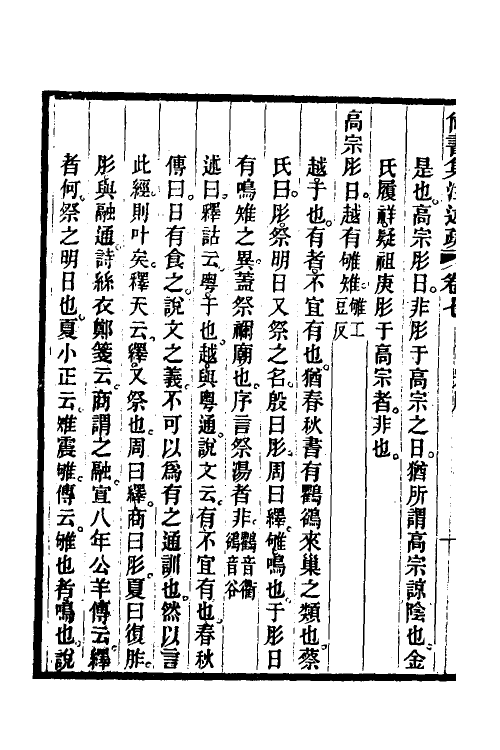 尚書集注述疏 卷七
是也。高宗肜日。非肜于高宗之日。猶所謂高宗諒陰也。金
氏履祥疑祖庚肜于高宗者。非也。
高宗肜日越有雊雉。雊工豆反
越。于也。有者。不宜有也。猶春秋書有鸜鵒來巢之類也。蔡
氏曰。肜。祭明日又祭之名。殷曰肜。周曰繹。雊。鳴也。于肜日
有鳴雉之異。蓋祭禰廟也。序言祭湯者非。鸜音衢鵒音谷
述曰。釋詁云。粵。于也。越與粵通。說文云。有。不宜有也。春秋
傳曰。日有食之。說文之義。不可以爲有之通訓也。然以言
此經。則叶矣。釋天云。繹。又祭也。周曰繹。商曰肜。夏曰復胙。
肜與融通。詩絲衣鄭箋云。商謂之融。宣八年公羊傳云。繹
者何。祭之明日也。夏小正云。雉震雊。傳云。雊也者。鳴也。說